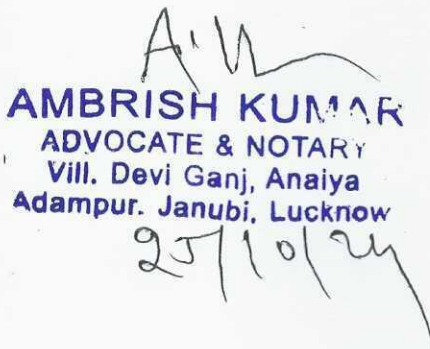 AMBRISH KUMAR
ADVOCATE & NOTARY
Vill. Devi Ganj, Anaiya
Adampur. Janubi, Lucknow
25/10/24